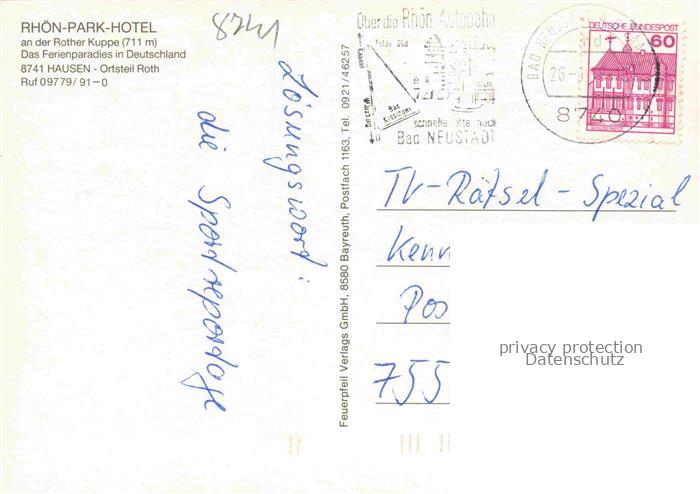 RHÖN-PARK-HOTEL
an der Rother Kuppe (711 m)
Das Ferienparadies in Deutschland
8741 HAUSEN - Ortsteil Roth
Ruf 09779/91-0
8741
Lösungswort:
die Sportreportage
Feuerpfeil Verlags GmbH, 8580 Bayreuth, Postfach 1163, Tel. 0921/46257
Über die Rhön-Autobahn
Fulda Süd
Bad
Kissingen
Bad NEUSTADT
BAD NEUSTADT
26
8740
DEUTSCHE BUNDESPOST
60
TV-Rätsel-Spezial
Kenn
Pos
755
privacy protection
Datenschutz